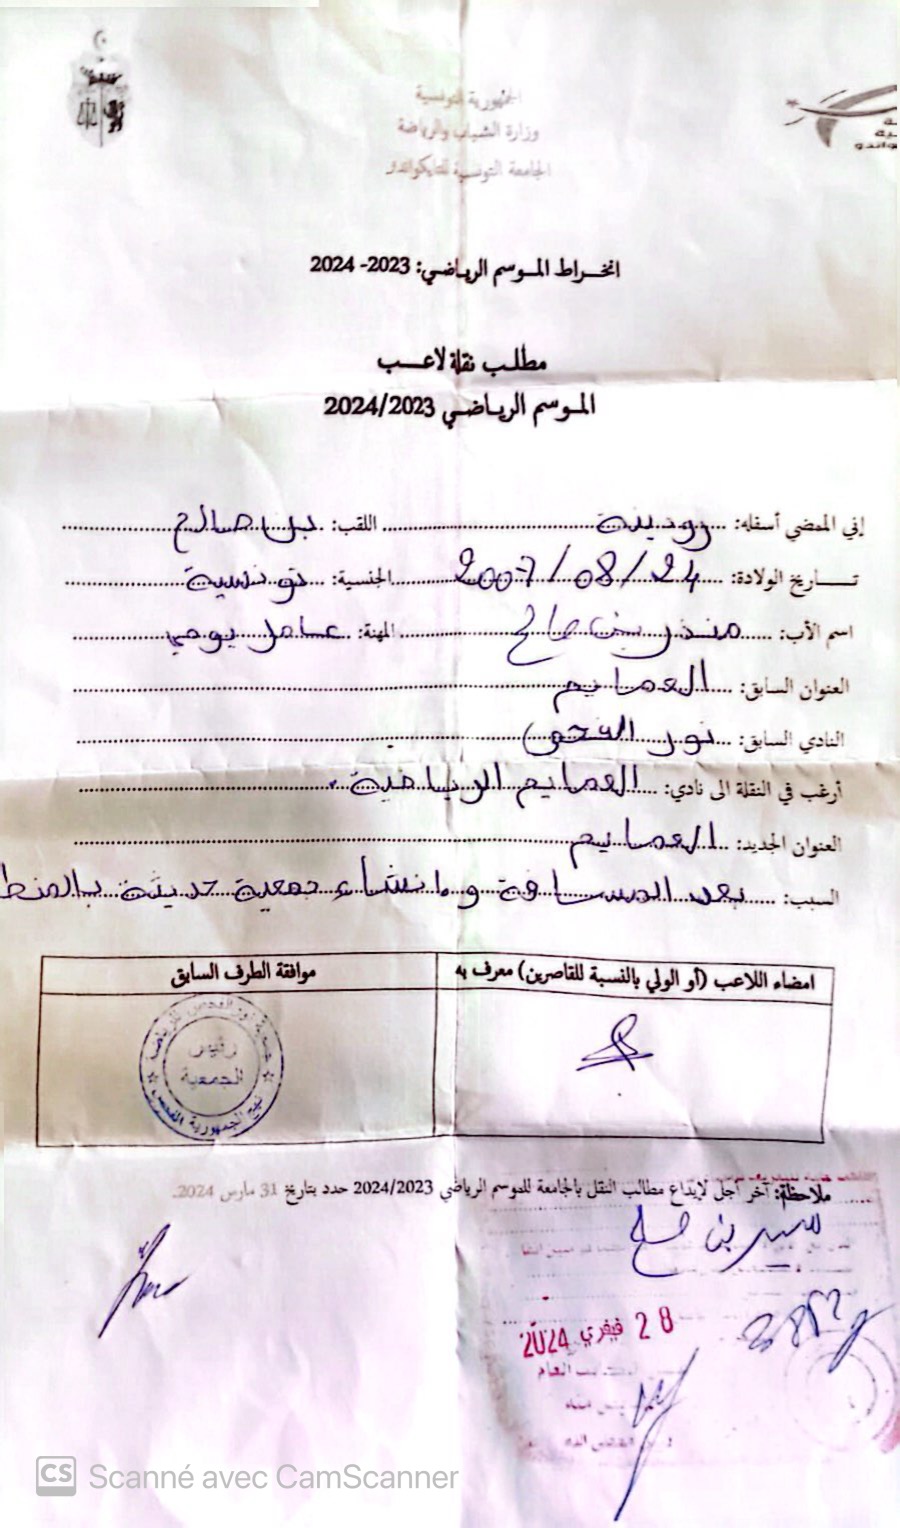 الجمهورية التونسية
وزارة الشباب والرياضة
الجامعة التونسية للتايكواندو
انخراط الموسم الرياضي: 2023- 2024
مطلب نقلة لاعب
الموسم الرياضي 2024/2023
إني الممضي أسفله: رودينة اللقب: بن صالح
تاريخ الولادة: 24/08/2007 الجنسية: تونسية
اسم الأب: منذر بن صالح المهنة: عامل يومي
العنوان السابق: العمايم
النادي السابق: نور الفحص
أرغب في النقلة الى نادي: العمايم الرياضية
العنوان الجديد: العمايم
السبب: بعد المسافة وانشاء جمعية حديثة بالمنط
امضاء اللاعب (أو الولي بالنسبة للقاصرين) معرف به
موافقة الطرف السابق
جمعية نور الفحص للرياضة
رئيس
الجمعية
نهج الجمهورية الفحص
ملاحظة: آخر أجل لإيداع مطالب النقل بالجامعة للموسم الرياضي 2024/2023 حدد بتاريخ 31 مارس 2024.
28 فيفري 2024
CS Scanné avec CamScanner